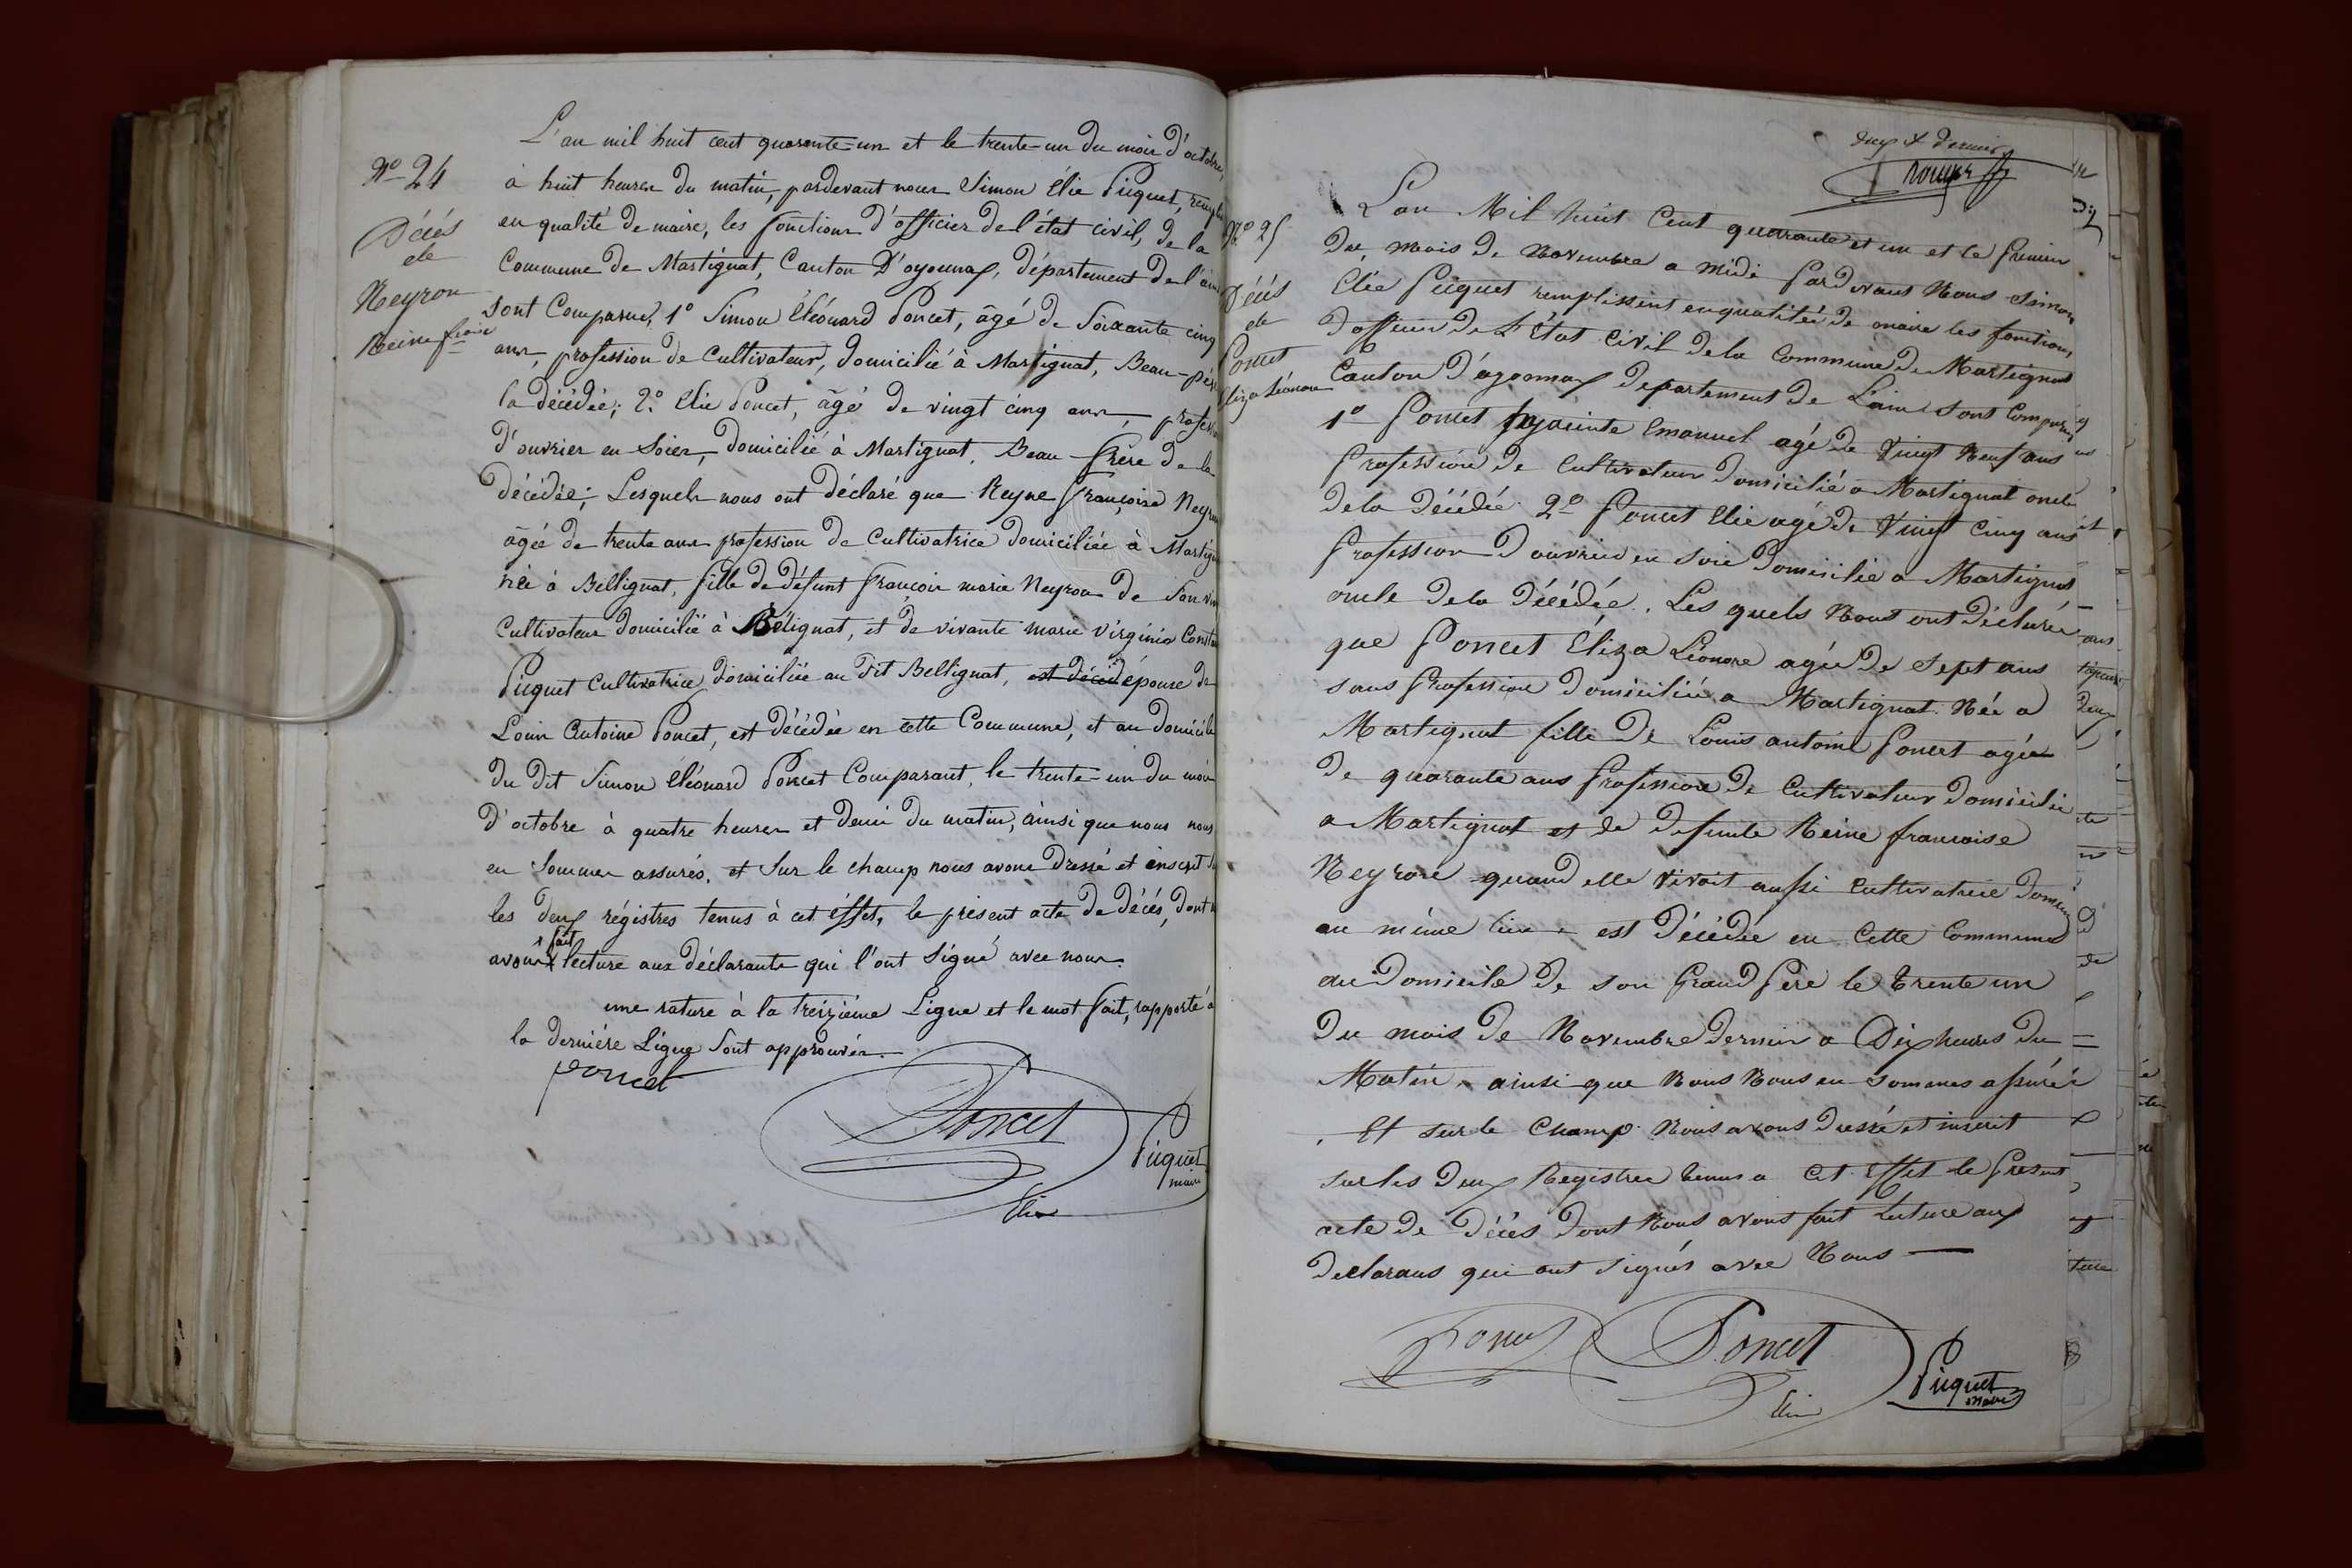 N° 24
Décés
de
Neyron
Reine fçoise
L'an mil huit cent quarante-un et le trente-un du mois d'octobre,
à huit heures du matin, pardevant nous Simon Elie Piquet, rempl
en qualité de maire, les fonctions d'officier de l'état civil, de la
Commune de Martignat, Canton D'oyonnax, département de l'ain
sont Comparus, 1° Simon Eléonard Poncet, âgé de Soixante cinq
ans, profession de Cultivateur, domicilié à Martignat, Beau-père
la décédée; 2° Elie Poncet, âgé de vingt cinq ans, profession
d'ouvrier en Soies, domicilié à Martignat, Beau-frère de la
décédée; Lesquels nous ont déclaré que Reyne françoise Neyron
âgée de trente ans profession de Cultivatrice domiciliée à Martigna
née à Bellignat, fille de défunt françois marie Neyron de Son viv
Cultivateur domicilié à Bélignat, et de vivante marie virginie Constan
Piquet Cultivatrice domiciliée au dit Bellignat, est décéd épouse de
Louis Antoine Poncet, est décédée en cette Commune, et au domicile
du dit Simon Eléonard Poncet Comparant, le trente-un du mois
d'octobre à quatre heures et demi du matin, ainsi que nous nous
en Sommes assurés. et Sur le champ nous avons dressé et inscrit Su
les deux régistres tenus à cet éffet, le présent acte de décés, dont n
avons fait lecture aux déclarants qui l'ont Signé avec nous.
une rature à la treizième Ligne et le mot fait, rapporté à
la dernière Ligne Sont approuvés.
poncet
Poncet
Elie
Piquet
maire
deux & dernier
N° 25
Décés
de
Poncet
Eliza Léonore
L'an Mil huit Cent quarante et un et le premier
du mois de Novembre a midi pardevant Nous Simon
Elie Piquet remplissent en qualitée de maire les fonctions
d'officier de L'État Civil de la Commune de Martignat
Canton d'oyonnax departement de L'ain sont Comparus
1° Poncet hyacinte Emanuel agé de Vingt Neuf ans
profession de Cultivateur domicilié a Martignat oncle
de la décédée 2° Poncet Elie agé de Vingt Cinq ans
profession d ouvrier en Soie domicilié a Martignat
oncle de la décédée. Les quels Nous ont déclarée
que Poncet Éliza Léonore agée de sept ans
sans profession domiciliée a Martignat Née a
Martignat fille de Louis antoine Poncet agée
de quarante ans profession de Cultivateur domicilié
a Martignat et de defunte Reine francoise
Neyron quand elle vivoit aussi Cultivatrice domici
au même lieu est décédée en Cette Commune
au domicile de son Grand Pere le trente un
du mois de Novembre dernier a Dix heures du
Matin ainsi que Nous Nous en sommes assurée
. Et sur le Champ Nous avons dressé et inscrit
sur les deux Registres tenus a Cet effet le present
acte de décès dont Nous avons fait lecture aux
declarans qui ont signés avec Nous
Poncet
Poncet
Elie
Piquet
maire